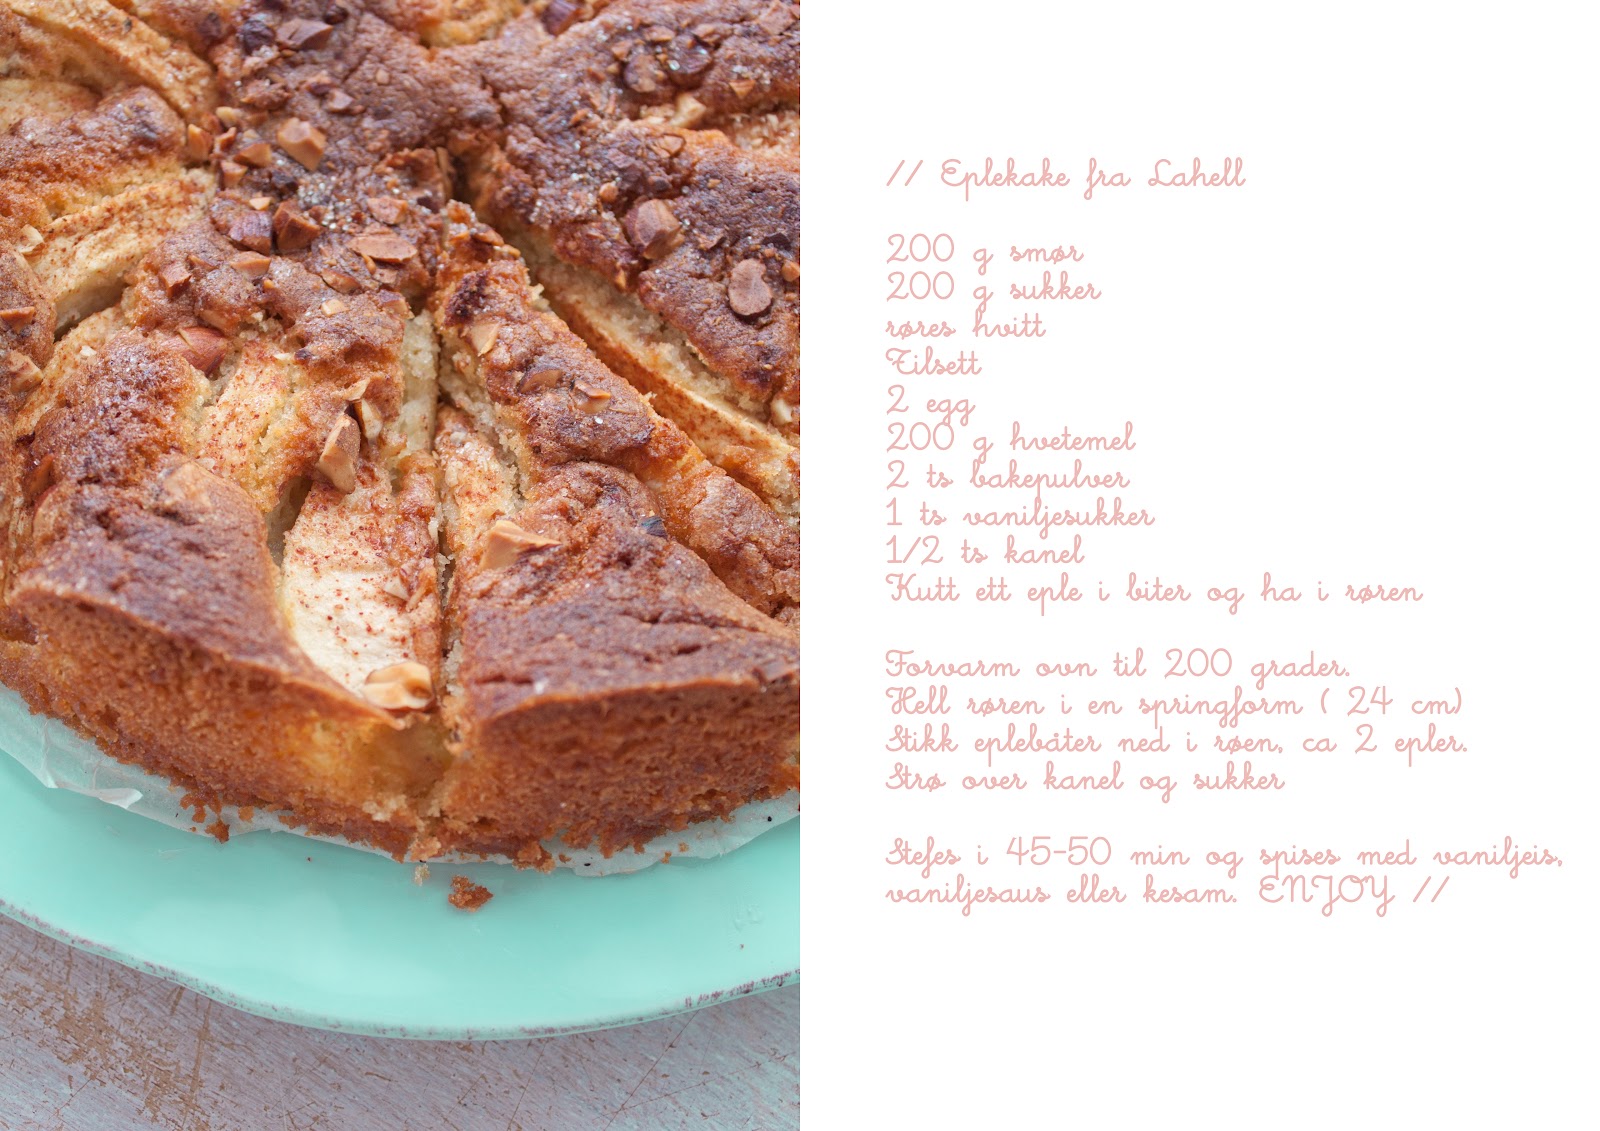 // Eplekake fra Lahell
200 g smør
200 g sukker
røres hvitt
Tilsett
2 egg
200 g hvetemel
2 ts bakepulver
1 ts vaniljesukker
1/2 ts kanel
Kutt ett eple i biter og ha i røren
Forvarm ovn til 200 grader.
Hell røren i en springform ( 24 cm)
Stikk eplebåter ned i røen, ca 2 epler.
Strø over kanel og sukker
Stefes i 45-50 min og spises med vaniljeis,
vaniljesaus eller kesam. ENJOY //